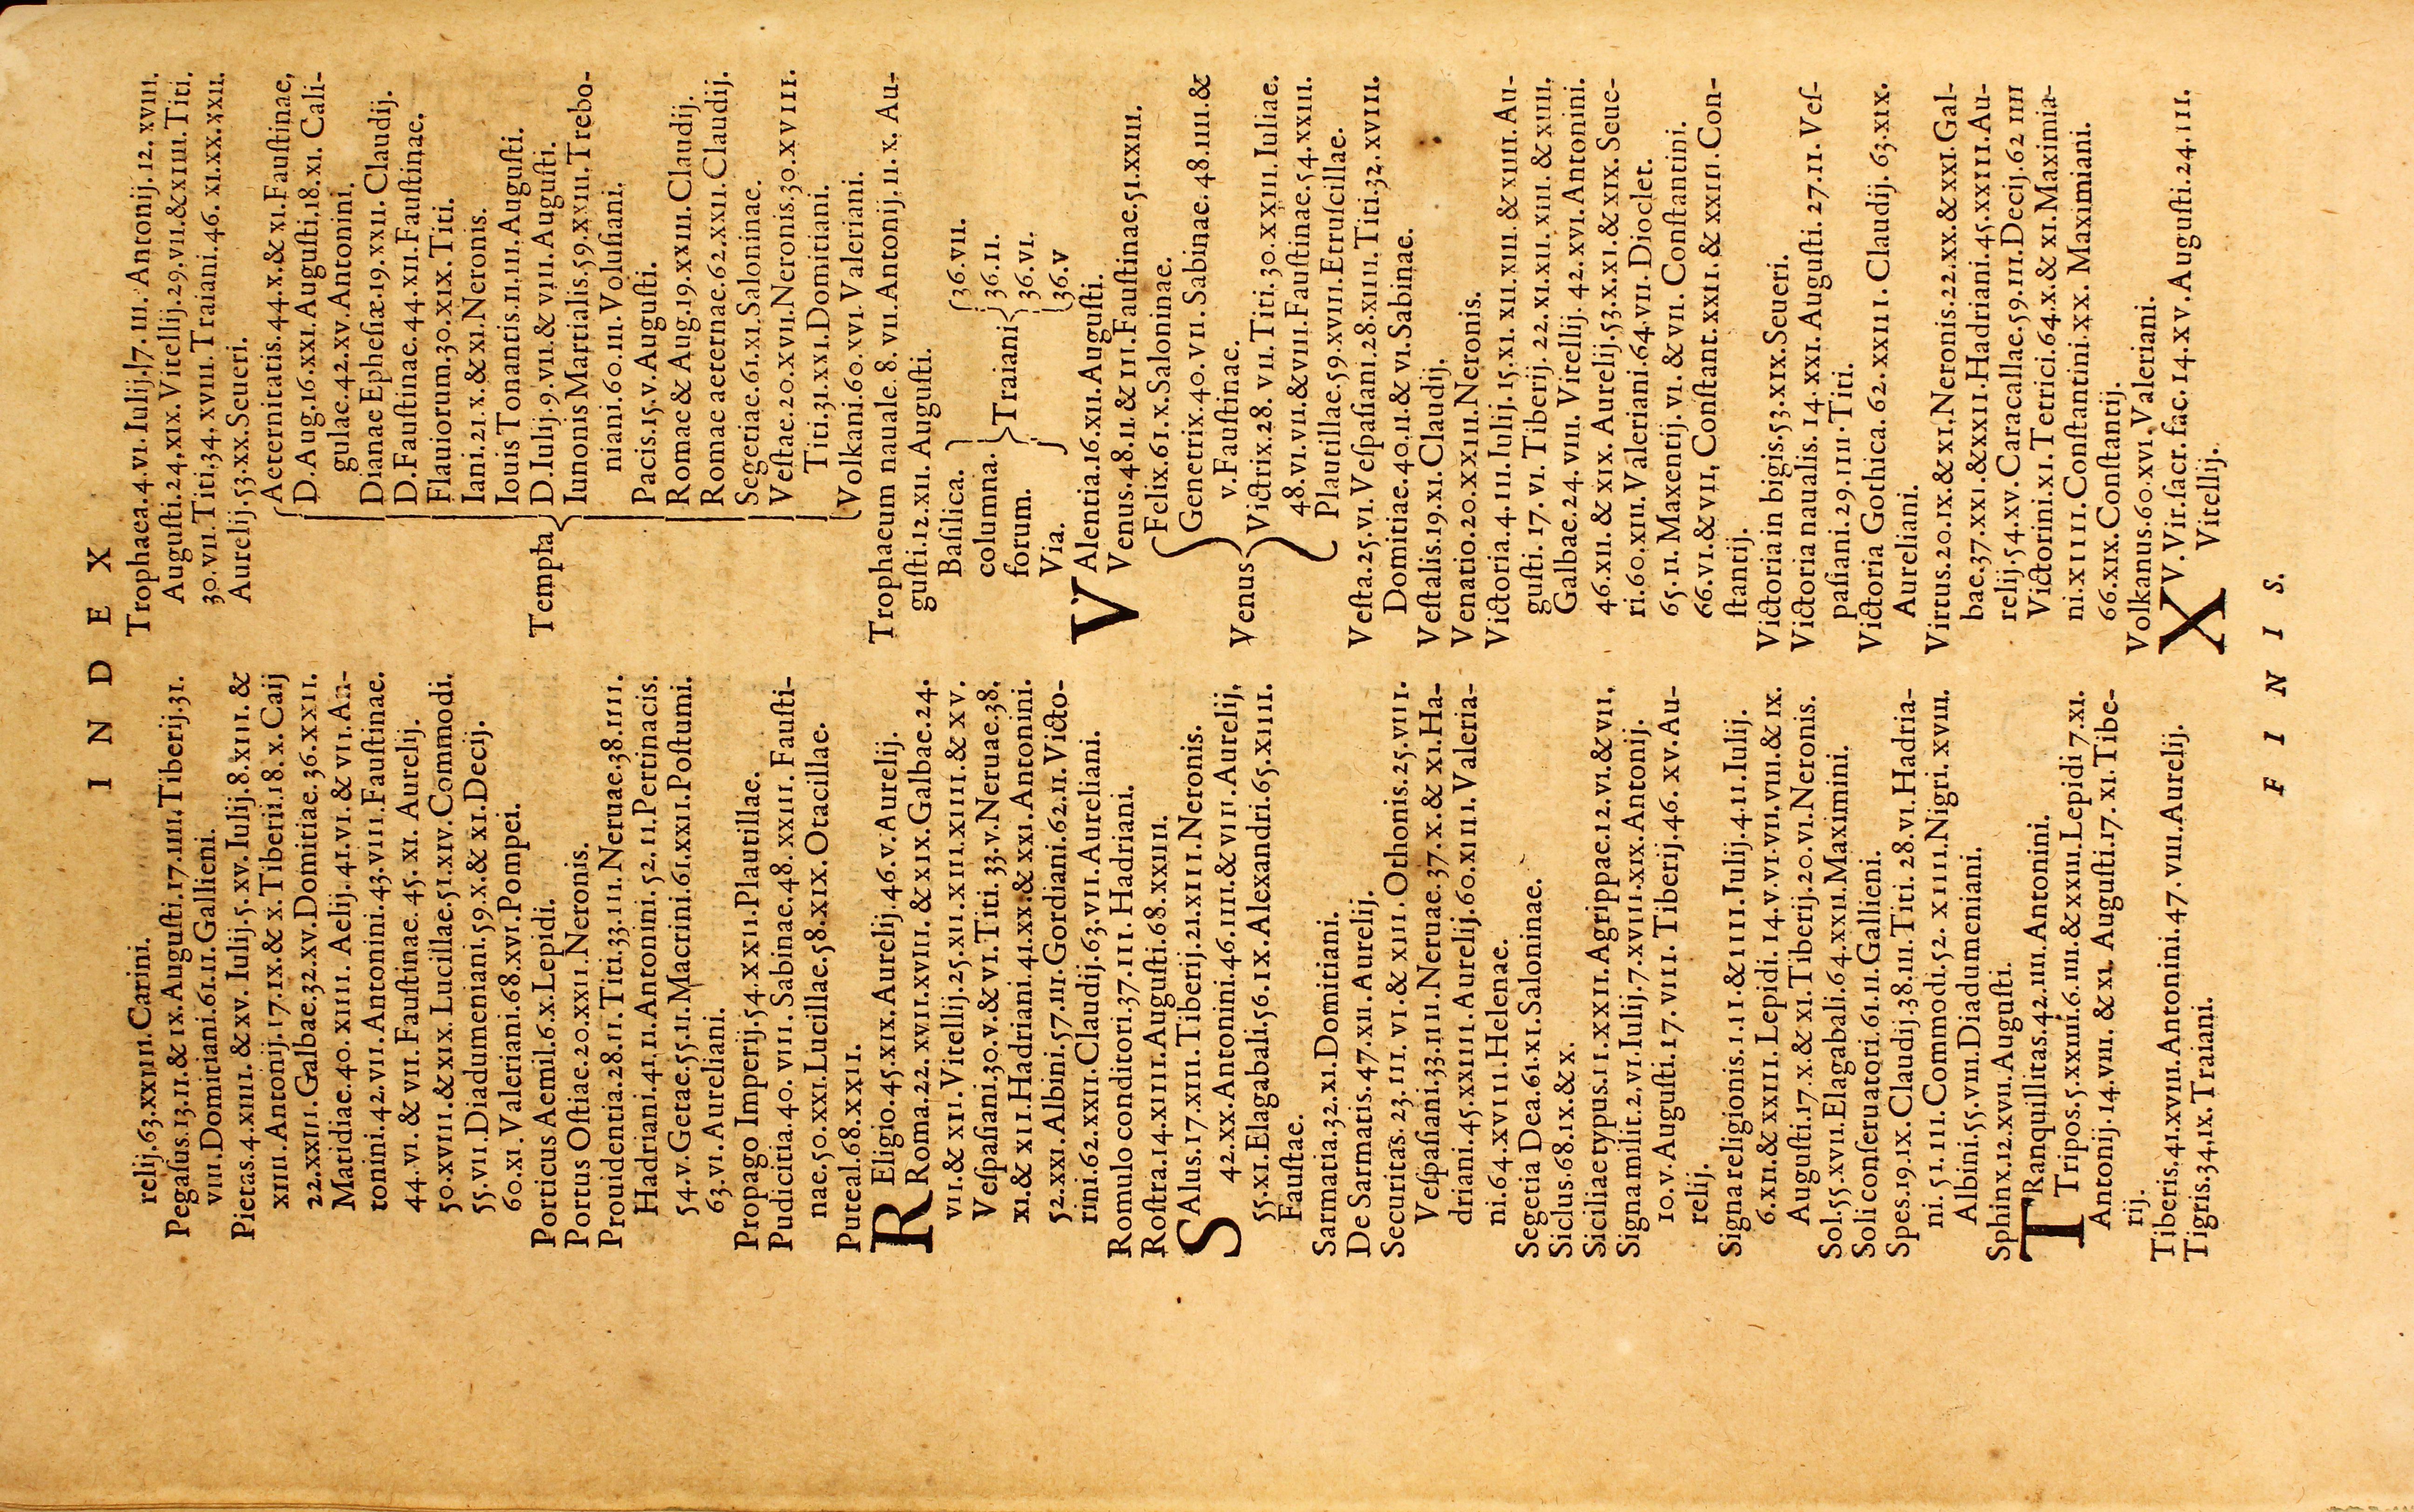 I N D E X
relij.63.xxIII.Carini.
Pegaſus.13.II.& IX.Auguſti.17.IIII.Tiberij.31.
VIII.Domitiani.61.II.Gallieni.
Pietas.4.XIIII.& XV. Iulij.5.XV.Iulij.8.XII.&
XIIII.Antonij.17.IX.& X.Tiberii.18.X.Caij
22.XXII.Galbae.32.XV.Domitiae.36.XXII.
Matidiae.40. XIIII. Aelij.41.VI.& VII.An-
tonini.42.VII.Antonini.43.VIII.Fauſtinae.
44.VI.& VII.Fauſtinae.45.XI.Aurelij.
50.XVIII.& XIX.Lucillae.51.XIV.Commodi.
55.VII.Diadumeniani.59.X.& XI.Decij.
60.XI.Valeriani.68.XVI.Pompei.
Porticus Aemil.6.X.Lepidi.
Portus Oſtiae.20.XXII.Neronis.
Prouidentia.28.II.Titi.33.III.Neruae.38.IIII.
Hadriani.41.II.Antonini.52.II.Pertinacis.
54.V.Getae.55.II.Macrini.61.XXI.Poſtumi.
63.VI.Aureliani.
Propago Imperij.54.XXII.Plautillae.
Pudicitia.40.VIII.Sabinae.48.XXIII.Fauſti-
nae.50.XXI.Lucillae.58.XIX.Otacillae.
Puteal.68.XXII.
R Eligio.45.XIX.Aurelij.46.V.Aurelij.
Roma.22.XVII.XVIII.& XIX.Galbae.24.
VII.& XII.Vitellij.25.XII.XIII.XIIII.& XV.
Veſpaſiani.30.V.& VI.Titi.33.V.Neruae.38.
XI.& XII.Hadriani.41.XX.& XXI.Antonini.
52.XXI.Albini.57.III.Gordiani.62.II.Victo-
rini.62.XXII.Claudij.63.VII.Aureliani.
Romulo conditori.37.III.Hadriani.
Roſtra.14.XIIII.Auguſti.68.XXIII.
S Alus.17.XIII.Tiberij.21.XIII.Neronis.
42.XX.Antonini.46.IIII.& VII.Aurelij.
55.XI.Elagabali.56.IX.Alexandri.65.XIIII.
Fauſtae.
Sarmatia.32.XI.Domitiani.
De Sarmatis.47.XII.Aurelij.
Securitas.23.III.VI.& XIII.Othonis.25.VIII.
Veſpaſiani.33.IIII.Neruae.37.X.& XI.Ha-
driani.45.XXIIII.Aurelij.60.XIIII.Valeria-
ni.64.XVIII.Helenae.
Segetia Dea.61.XI.Saloninae.
Siclus.68.IX.& X.
Siciliae typus.11.XXII.Agrippae.12.VI.& VII.
Signa milit.2.VI.Iulij.7.XVIII.XIX.Antonij.
10.V.Auguſti.17.VIII.Tiberij.46.XV.Au-
relij.
Signa religionis.1.II.& IIII.Iulij.4.II.Iulij.
6.XII.& XXIII.Lepidi.14.V.VI.VII.VIII.& IX.
Auguſti.17.X.& XI.Tiberij.20.VI.Neronis.
Sol.55.XVII.Elagabali.64.XXII.Maximini.
Soli conſeruatori.61.II.Gallieni.
Spes.19.IX.Claudij.38.III.Titi.28.VI.Hadria-
ni.51.III.Commodi.52.XIIII.Nigri.XVIII.
Albini.55.VIII.Diadumeniani.
Sphinx.12.XVII.Auguſti.
T Ranquillitas.42.IIII.Antonini.
Tripos.5.XXIIII.6.IIII.& XXIII.Lepidi 7.XI.
Antonij.14.VIII.& XI.Auguſti.17.XI.Tibe-
rij.
Tiberis.41.XVIII.Antonini.47.VIII.Aurelij.
Tigris.34.IX.Traiani.
Trophaea.4.VI.Iulij.7.III.Antonij.12.XVIII.
Auguſti.24.XIX.Vitellij.29.VII.& XIIII.Titi.
30.VII.Titi.34.XVIII.Traiani.46.XI.XX.XXII.
Aurelij.53.XX.Seueri.
Aeternitatis.44.X.& XI.Fauſtinae,
D.Aug.16.XXI.Auguſti.18.XI.Cali-
gulae.42.XV.Antonini.
Dianae Epheſiæ.19.XXII.Claudij.
D.Fauſtinae.44.XII.Fauſtinae.
Flauiorum.30.XIX.Titi.
Iani.21.X.& XI.Neronis.
Iouis Tonantis.11.III.Auguſti.
Templa D.Iulij.9.VII.& VIII.Auguſti.
Iunonis Martialis.59.XXIII.Trebo-
niani.60.III.Voluſiani.
Pacis.15.V.Auguſti.
Romae & Aug.19.XXIII.Claudij.
Romae aeternae.62.XXII.Claudij.
Segetiae.61.XI.Saloninae.
Veſtae.20.XVII.Neronis.30.XVIII.
Titi.31.XXI.Domitiani.
Volkani.60.XVI.Valeriani.
Trophaeum nauale.8.VII.Antonij.11.X.Au-
guſti.12.XII.Auguſti.
Baſilica. 36.VII.
columna. Traiani 36.II.
forum. 36.VI.
Via. 36.V
V Alentia.16.XII.Auguſti.
Venus.48.II.& III.Fauſtinae.51.XXIII.
Felix.61.X.Saloninae.
Genetrix.40.VII.Sabinae.48.IIII.&
V.Fauſtinae.
Venus Victrix.28.VII.Titi.30.XXIII.Iuliae.
48.VI.VII.& VIII.Fauſtinae.54.XXIII.
Plautillae.59.XVIII.Etruſcillae.
Veſta.25.VI.Veſpaſiani.28.XIIII.Titi.32.XVIII.
Domitiae.40.II.& VI.Sabinae.
Veſtalis.19.XI.Claudij.
Venatio.20.XXIII.Neronis.
Victoria.4.III.Iulij.15.XI.XII.XIII.& XIIII.Au-
guſti.17.VI.Tiberij.22.XI.XII.XIII.& XIIII.
Galbae.24.VIII.Vitellij.42.XVI.Antonini.
46.XII.& XIX.Aurelij.53.X.XI.& XIX.Seue-
ri.60.XIII.Valeriani.64.VII.Dioclet.
65.II.Maxentij.VI.& VII.Conſtantini.
66.VI.& VII.Conſtant.XXII.& XXIII.Con-
ſtantij.
Victoria in bigis.53.XIX.Seueri.
Victoria naualis.14.XXI.Auguſti.27.II.Veſ-
paſiani.29.IIII.Titi.
Victoria Gothica.62.XXIII.Claudij.63.XIX.
Aureliani.
Virtus.20.IX.& XI.Neronis.22.XX.& XXI.Gal-
bae.37.XXI.& XXII.Hadriani.45.XXIII.Au-
relij.54.XV.Caracallae.59.III.Decij.62 IIII
Victorini.XI.Tetrici.64.X.& XI.Maximia-
ni.XIIII.Conſtantini.XX.Maximiani.
66.XIX.Conſtantij.
Volkanus.60.XVI.Valeriani.
X V.Vir.ſacr.fac.14.XV.Auguſti.24.III.
Vitellij.
F I N I S.